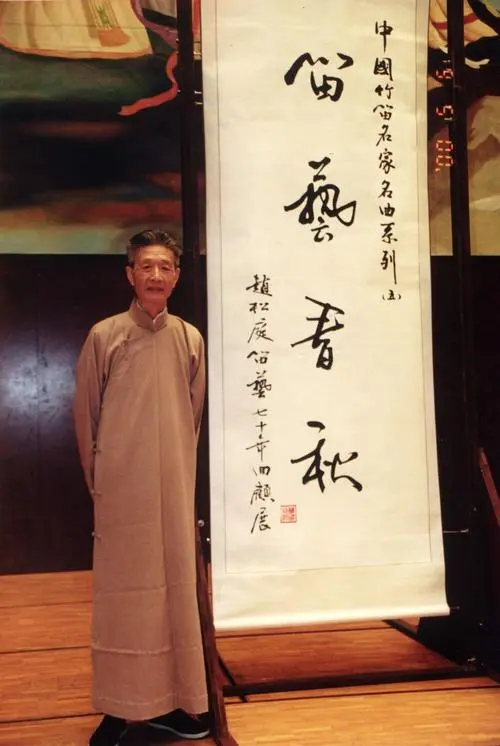 中國竹笛名家名曲系列(五)
笛藝春秋
趙松庭笛藝七十年回顧展